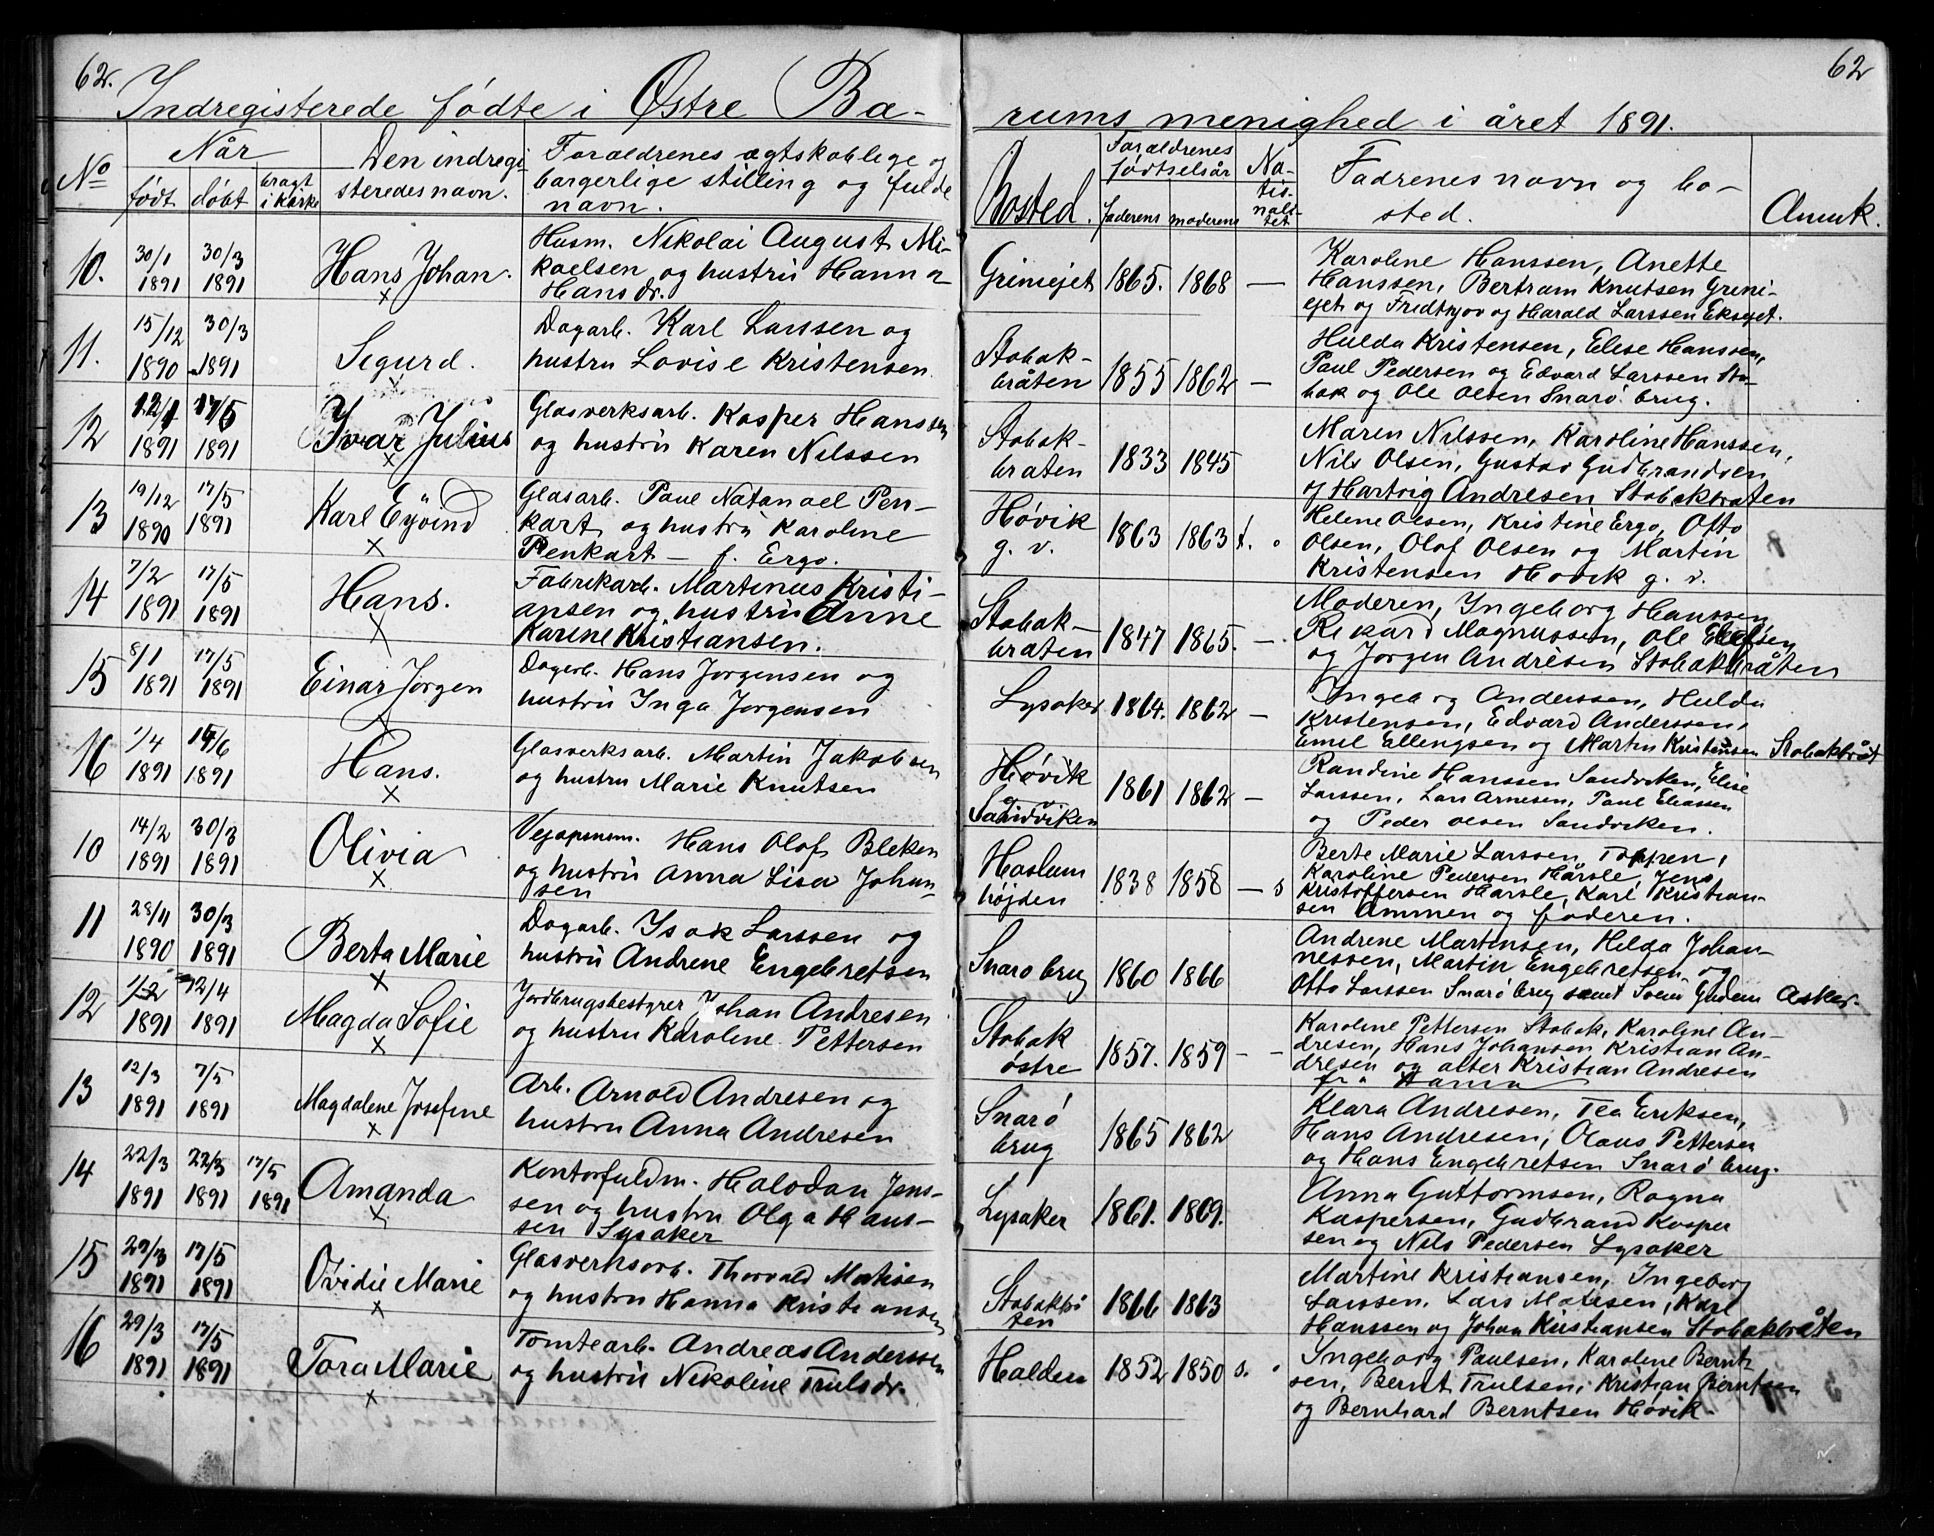 62.
Indregisterede fødte i Østre Bæ-
No
Når
født
døbt
bragt i kirke
Den indregi
steredes navn.
Forældrenes ægtskablige og
borgerlige stilling og fulde
navn.
10.
30/1 1891
30/3 1891
Hans Johan.
Husm. Nikolai August Mi-
kaelsen og hustru Hanna
Hansdr.
11.
15/12 1890
30/3 1891
Sigurd.
Dagarb. Karl Larssen og
hustru Lovise Kristensen
12
12/1 1891
17/5 1891
Ivar Julius
Glasverksarb. Kasper Hanssen
og hustru Karen Nilssen
13
19/12 1890
17/5 1891
Karl Eyvind
Glasarb. Paul Natanael Pen-
kart og hustru Karoline
Penkart - f. Ergo.
14
7/2 1891
17/5 1891
Hans.
Fabrikarb. Martinus Kristi-
ansen og hustru Anne
Karine Kristiansen.
15
8/1 1891
17/5 1891
Einar Jørgen
Dagarb. Hans Jørgensen og
hustru Inga Jørgensen
16
1/4 1891
14/6 1891
Hans.
Glasverksarb. Martin Jakobsen
og hustru Marie Knutsen
10
14/2 1891
30/3 1891
Olivia
Vejopsynsm. Hans Olaf Bleken
og hustru Anna Lisa Johan-
sen
11
28/11 1890
30/3 1891
Berta Marie
Dagarb. Isak Larssen og
hustru Andrene Engebretsen
12
1/2 1891
12/4 1891
Magda Sofie
Jordbrugsbestyrer Johan Andresen
og hustru Karoline Pettersen
13
12/3 1891
7/5 1891
Magdalene Josefine
Arb. Arnold Andresen og
hustru Anna Andresen
14
22/3 1891
22/3 1891
17/5 1891
Amanda
Kontorfuldm. Halvdan Jens-
sen og hustru Olga Hans-
sen Lysaker
15
29/3 1891
17/5 1891
Ovidie Marie
Glasverksarb. Thorvald Matisen
og hustru Hanna Kristiansen
16
29/3 1891
17/5 1891
Tora Marie
Tomtearb. Andreas Anderssen
og hustru Nikoline Trulsdr.
62
rums menighed i året 1891.
Bosted.
Forældrenes
fødtselsår
faderens
moderens
Na-
tio-
nali-
tet
Fadrenes navn og bo-
sted.
Anmk.
Griniejet
1865. 1868 —
Karoline Hanssen, Anette
Hanssen, Bertram Knutsen Grini-
ejet og Fredtjov og Harald Larssen Eksejet.
Stabæk-
bråten
1855 1862 —
Hulda Kristensen, Elise Hanssen,
Paul Pedersen og Edvard Larssen Sta-
bæk og Ole Olsen Snarø brug.
Stabæk-
bråten
1833 1845
Maren Nilssen, Karoline Hanssen,
Nils Olsen, Gustav Gudbrandsen
og Hartvig Andresen Stabækbråten
Høvik
g. v.
1863 1863 f.
Helene Olsen, Kristine Ergo, Otto
Olsen, Olaf Olsen og Martin
Kristensen Høvik g. v.
Stabæk-
bråten
1847 1865. —
Moderen, Ingeborg Hanssen
Rikard Magnussen, Ole Ellefsen
og Jørgen Andresen Stabækbråten
Lysaker
1864. 1862 —
Ingeborg Anderssen, Hulda
Kristensen, Edvard Anderssen,
Emil Ellingsen og Martin Kristensen Stabækbråt
Høvik
Sandviken
1861 1862 —
Randine Hanssen Sandviken, Elise
Larssen, Lars Arnesen, Paul Eliassen
og Peder Olsen Sandviken.
Haslum
højden
1838 1858 — s
Berte Marie Larssen, Toppen,
Karoline Pedersen Harsle, Jens
Kristoffersen Harsle, Karl Kristian-
sen Ammen og faderen.
Snarø brug
1860 1866
Andrene Martinsen, Helda Johan-
nessen, Martin Engebretsen og
Otto Larssen Snarø brug samt Svein Gudem Asker.
Stabæk
østre
1857. 1859 - -
Karoline Pettersen Stabæk, Karoline An-
dresen, Hans Johansen Kristian An-
dresen og atter Kristian Andresen
Snarø
brug
1865 1862
Klara Andresen, Tea Eriksen,
Hans Andresen, Olaus Pettersen
og Hans Engebretsen Snarø brug.
Lysaker
1861. 1869.
Anna Guttormsen, Ragna
Kaspersen, Gudbrand Kasper
sen og Nils Pedersen Lysaker
Stabækbrå
ten
1866 1863
Martine Kristiansen, Ingeborg
Larssen, Lars Matisen, Karl
Hanssen og Johan Kristiansen Stabækbråten
Halden
1852 1850 s.
Ingeborg Paulsen, Karoline Bernt
sen, Bernt Trulsen, Kristian Berntsen
og Bernhard Berntsen Høvik.